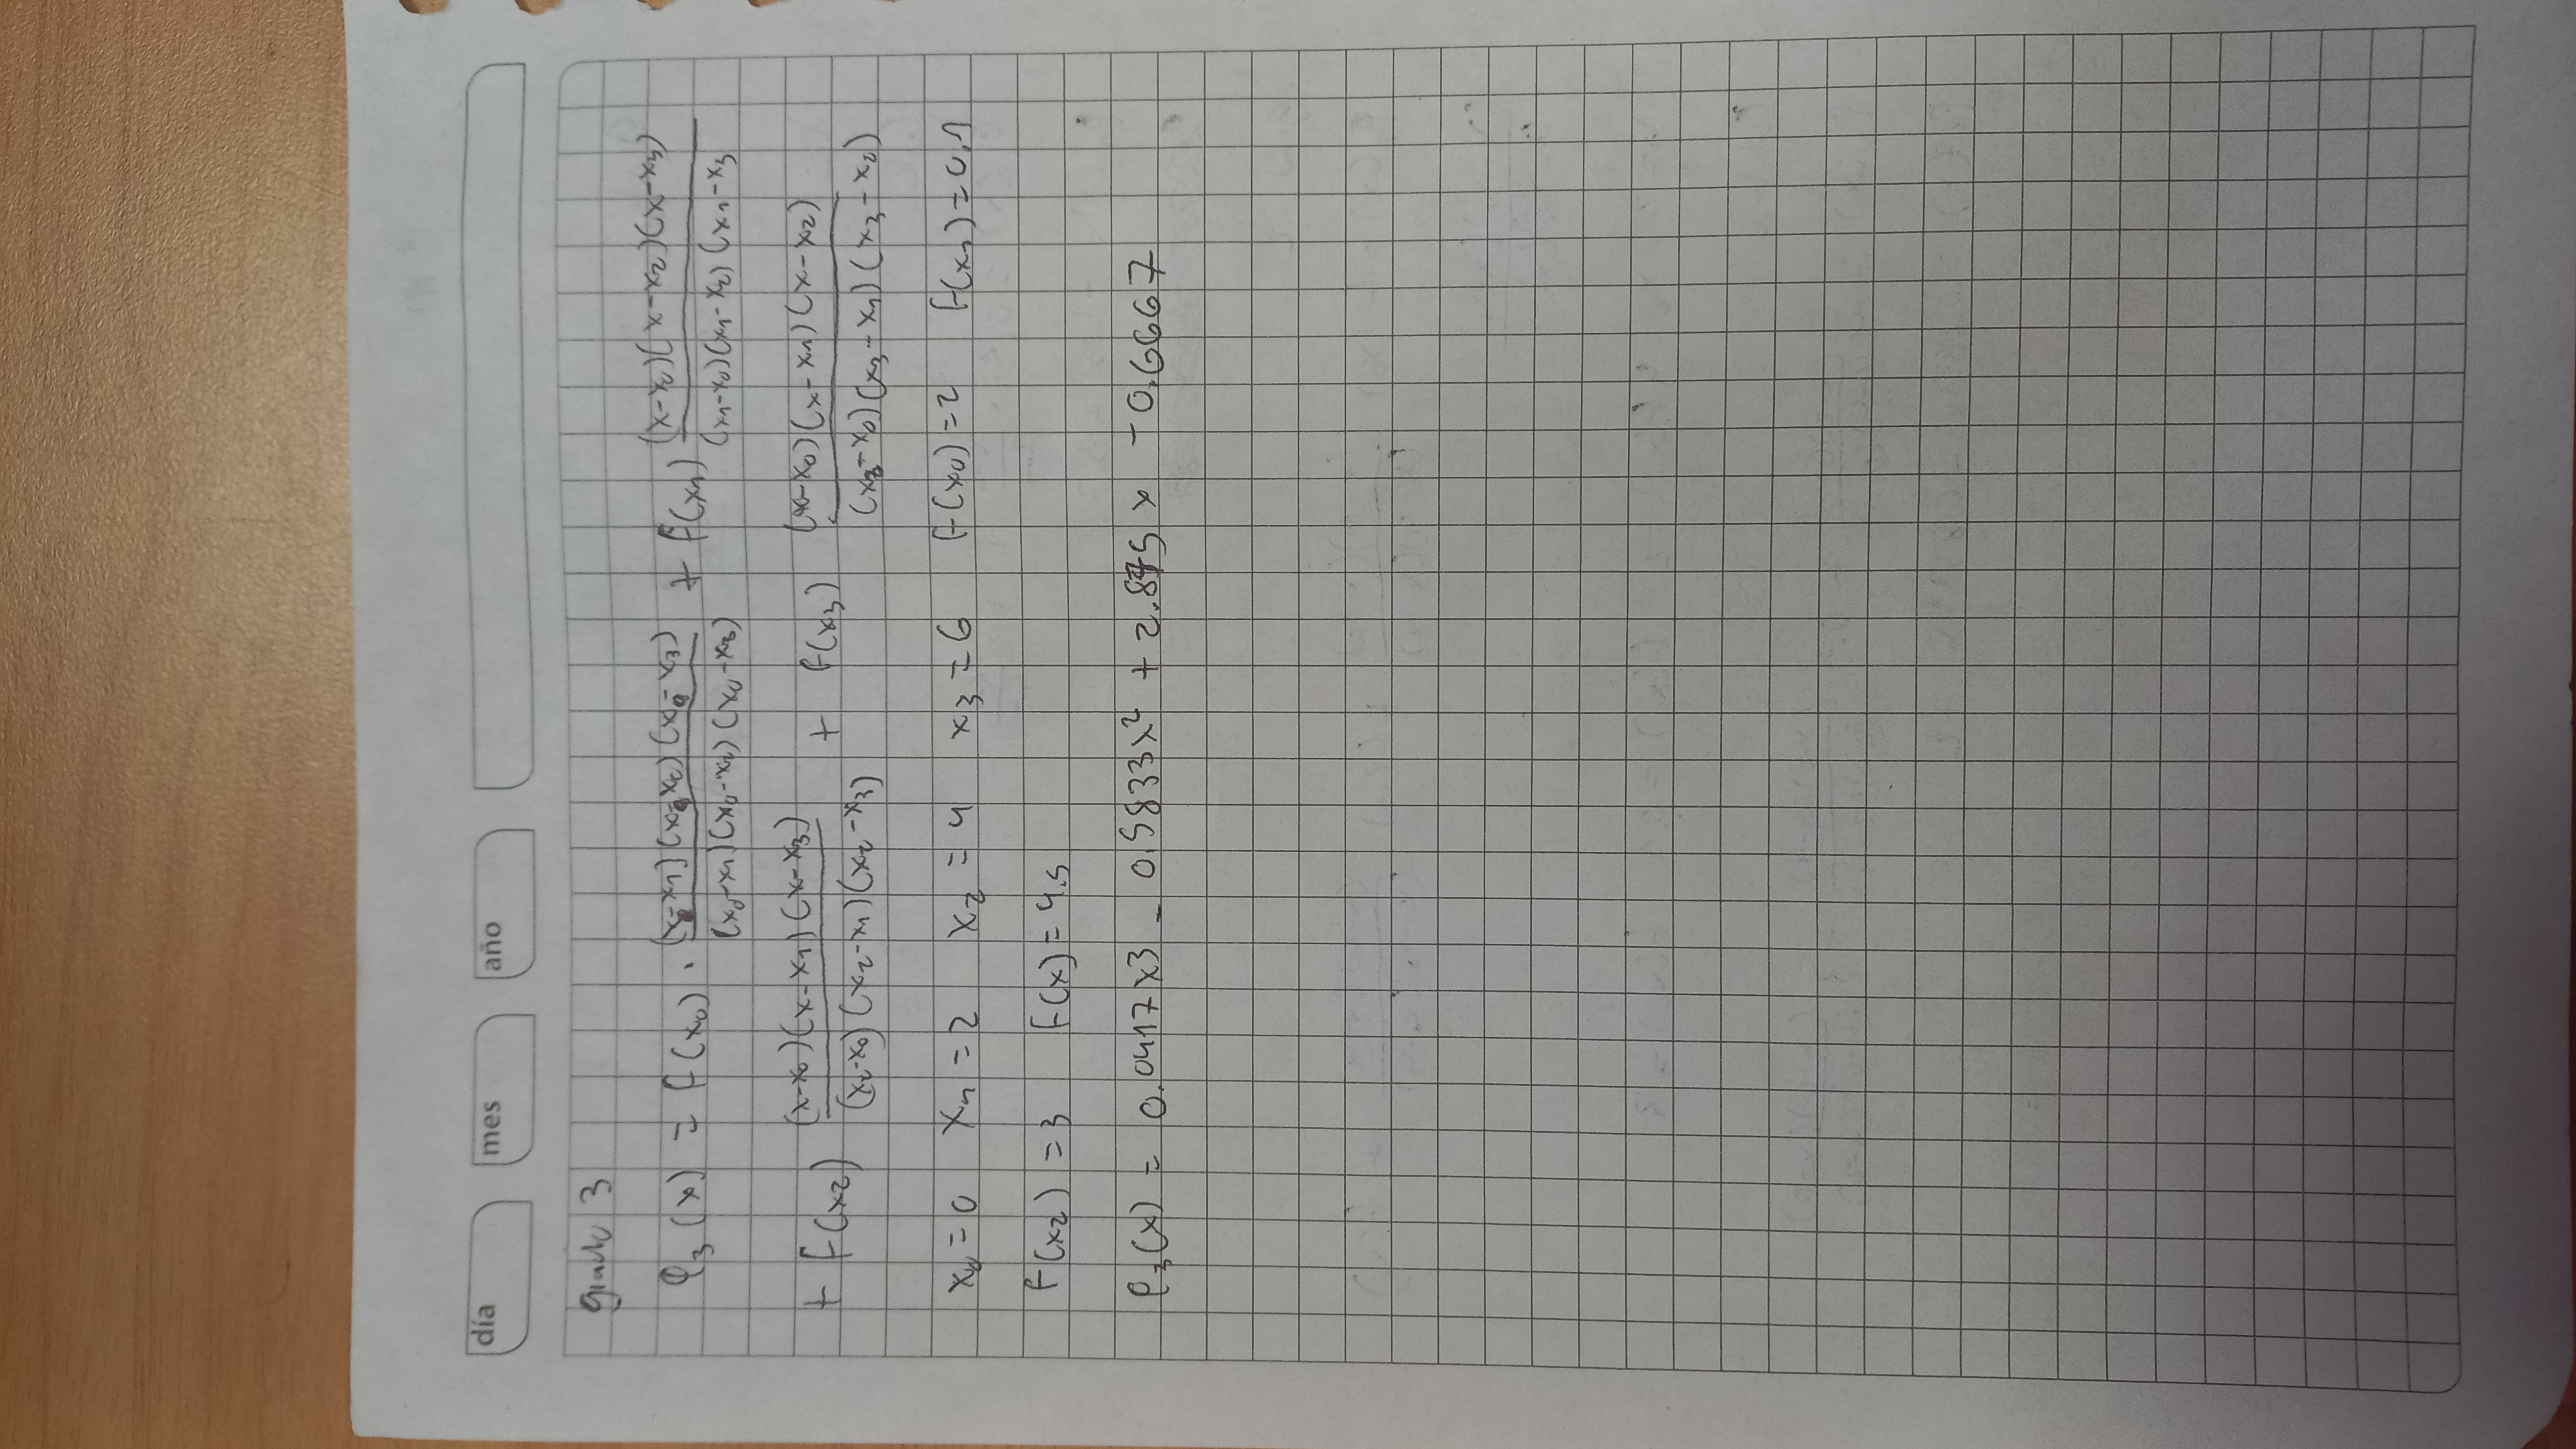 día mes año
grado 3
P₃(x) = f(x₀) · (x-x₁)(x-x₂)(x-x₃) / (x₀-x₁)(x₀-x₂)(x₀-x₃) + f(x₁) (x-x₀)(x-x₂)(x-x₃) / (x₁-x₀)(x₁-x₂)(x₁-x₃
+ f(x₂) (x-x₀)(x-x₁)(x-x₃) / (x₂-x₀)(x₂-x₁)(x₂-x₃) + f(x₃) (x-x₀)(x-x₁)(x-x₂) / (x₃-x₀)(x₃-x₁)(x₃-x₂)
x₀=0 x₁=2 x₂=4 x₃=6 f(x₀)=2 f(x₁)=0,1
f(x₂)=3 f(x)=4.5
P₃(x) = 0.0417x3 - 0,5833x² + 2.875x - 0,6667